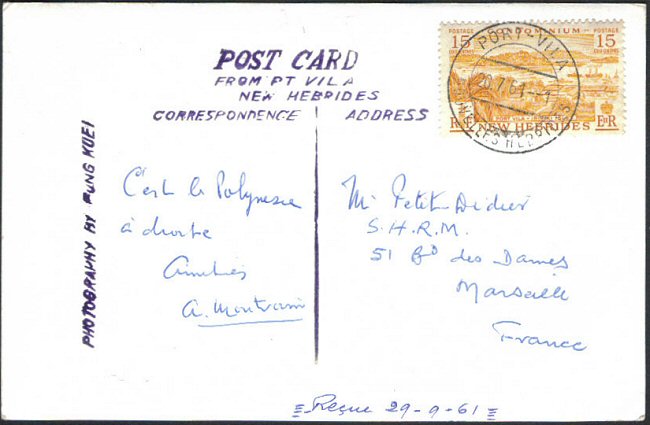 POST CARD
FROM PT VILA
NEW HEBRIDES
CORRESPONDENCE ADDRESS
PHOTOGRAPHY BY FUNG KUEI
C'est la Polynesie
à droite
Amitiés
A. Montvain
Mr Petit Didier
S.H.R.M.
51 Bd des Dames
Marseille
France
Reçue 29-9-61
POSTAGE CONDOMINIUM POSTAGE
15 15
PORT VILA
R.F. NEW HEBRIDES E II R
PORT-VILA